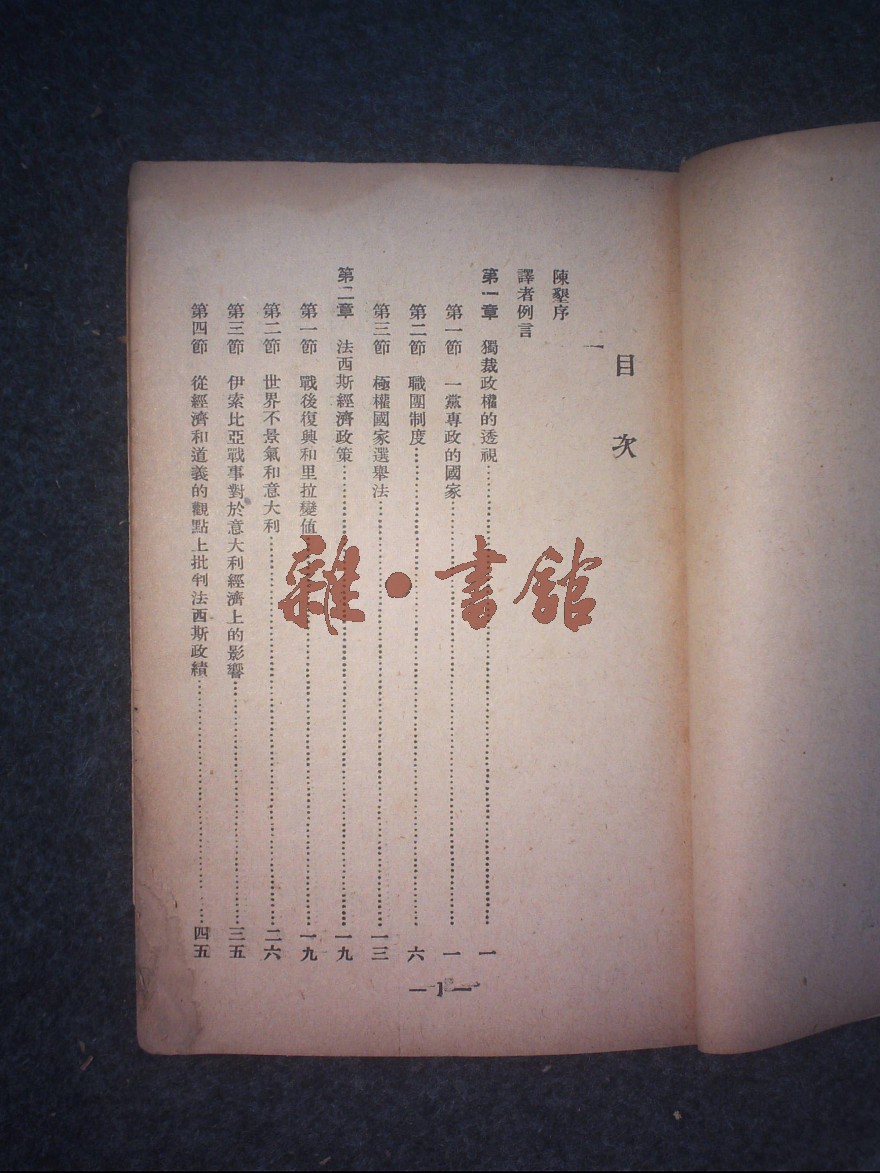 目 次
陳壑序
譯者例言
第一章 獨裁政權的透視……一
第一節 一黨專政的國家……一
第二節 職團制度……六
第三節 極權國家選舉法……一三
第二章 法西斯經濟政策……一九
第一節 戰後復興和里拉變値……一九
第二節 世界不景氣和意大利……二六
第三節 伊索比亞戰事對於意大利經濟上的影響……三五
第四節 從經濟和道義的觀點上批判法西斯政績……四五
— 1 —
雜·書館